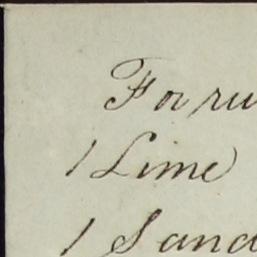 For ru
1 Lime
1 Sand